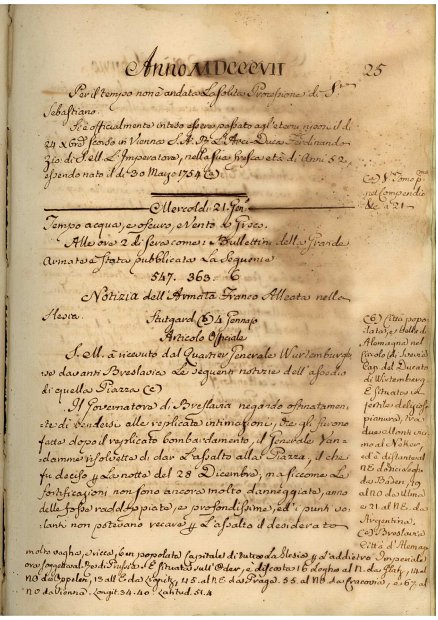 Anno MDCCCVII 25
Per il tempo non è andata la solita Processione di S.
Sebastiano.
Si è officialmente inteso essere passato agl'eterni riposi il dì
24 scorso in Vienna S. A. R. l'Arci-Duca Ferdinando
Zio di S. M. l'Imperatore, nella sua fresca età di Anni 52
essendo nato il dì 30 Marzo 1754 (a)
Mercoldì 21 Gen.
Tempo acqua, e oscuro, e Vento di Greco.
Alle ore 2 di sera come i Bullettini della Grande
Armata è stata pubblicata la seguente
547. 363. 6
Notizia dell'Armata Franco Alleata nella
Slesia. Stutgard (b) 4 Gennajo
Articolo Officiale
S. M. à ricevuto dal Quartier Generale Wurtemburghe
se davanti Breslavia le seguenti notizie dell'assedio
di quella Piazza (c)
Il Governatore di Breslavia negando ostinatamen
te di rendersi alle replicate intimazioni, che gli furono
fatte dopo il replicato bombardamento, il Generale Van
damme risolvette di dar l'assalto alla Piazza, il che
fu deciso la notte del 28 Dicembre; ma siccome le
fortificazioni non sono ancora molto danneggiate, anno
delle fosse raddoppiate, e profondissime, ed i punti
non potevano recare l'assalto il desiderato
(a) V. Tomo
nel Compendio
a 21
(b) Città popo
lata, e bella di
Alemagna nel
Circolo di Svevia
Cap. del Ducato
di Wirtemberg
È situata in
fertile
pianura, tra
due
no al Neker,
ed è distante al
NE
da Baden, 19
al NO da Ulma
e 21 al NE da
Argentina.
(c) Breslavia
Città d'Alemag
molto vaga, e ricca, e ben popolata Capitale di tutta la Slesia
È situata sull'Oder, e discosta 16 leghe al N. da Glatz, 14 al
NO da Oppelen, 13 all'E. da Lignitz, 45. al NE da Praga. 55. al NO da Cracovia, e 67. al
N. da Vienna. Longit. 34. 40. Latitud. 51. 4